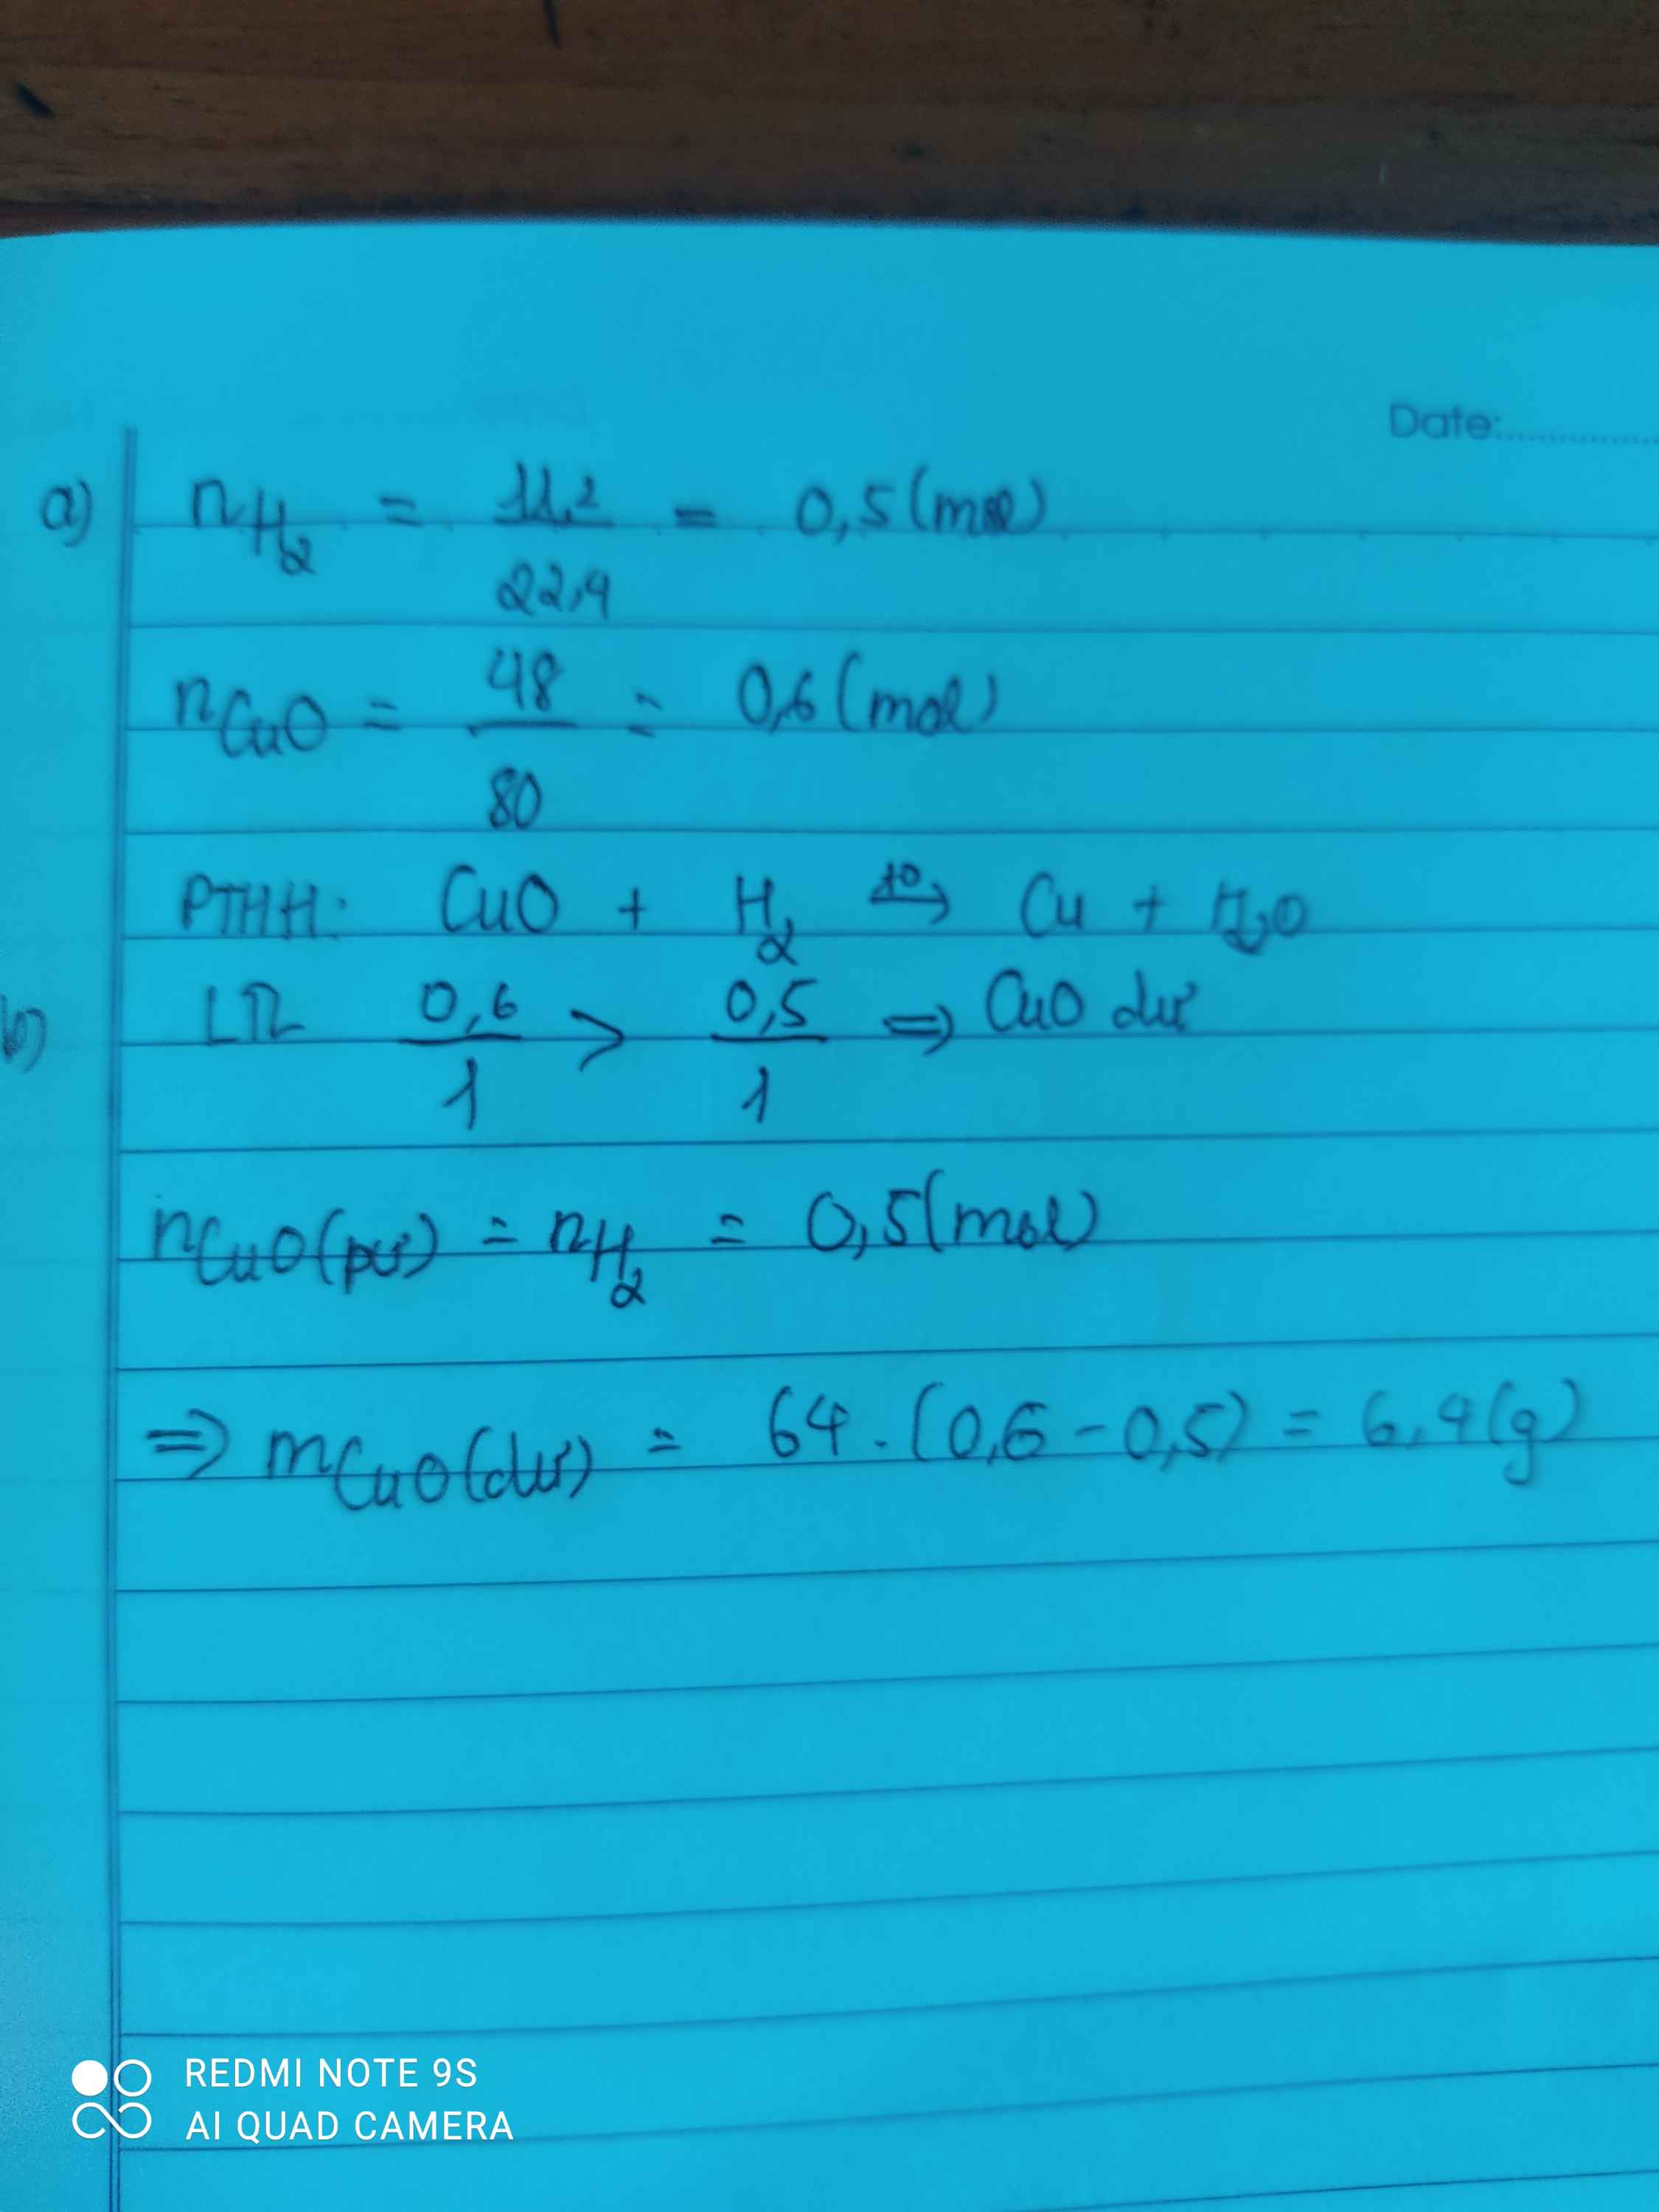 Date:
a) nH2 = 11,2/22,4 = 0,5 (mol)
nCuO = 48/80 = 0,6 (mol)
PTHH: CuO + H2 t°→ Cu + H2O
b) LTL 0,6/1 > 0,5/1 ⇒ CuO dư
nCuO(pư) = nH2 = 0,5 (mol)
⇒ mCuO(dư) = 64 . (0,6 - 0,5) = 6,4 (g)
REDMI NOTE 9S
AI QUAD CAMERA